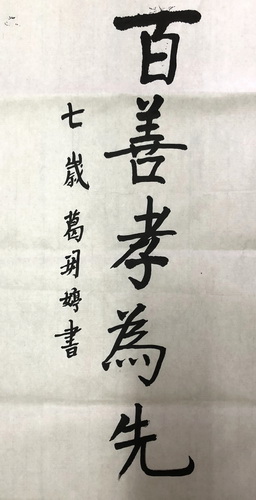 百善孝為先
七歲葛玥婷書